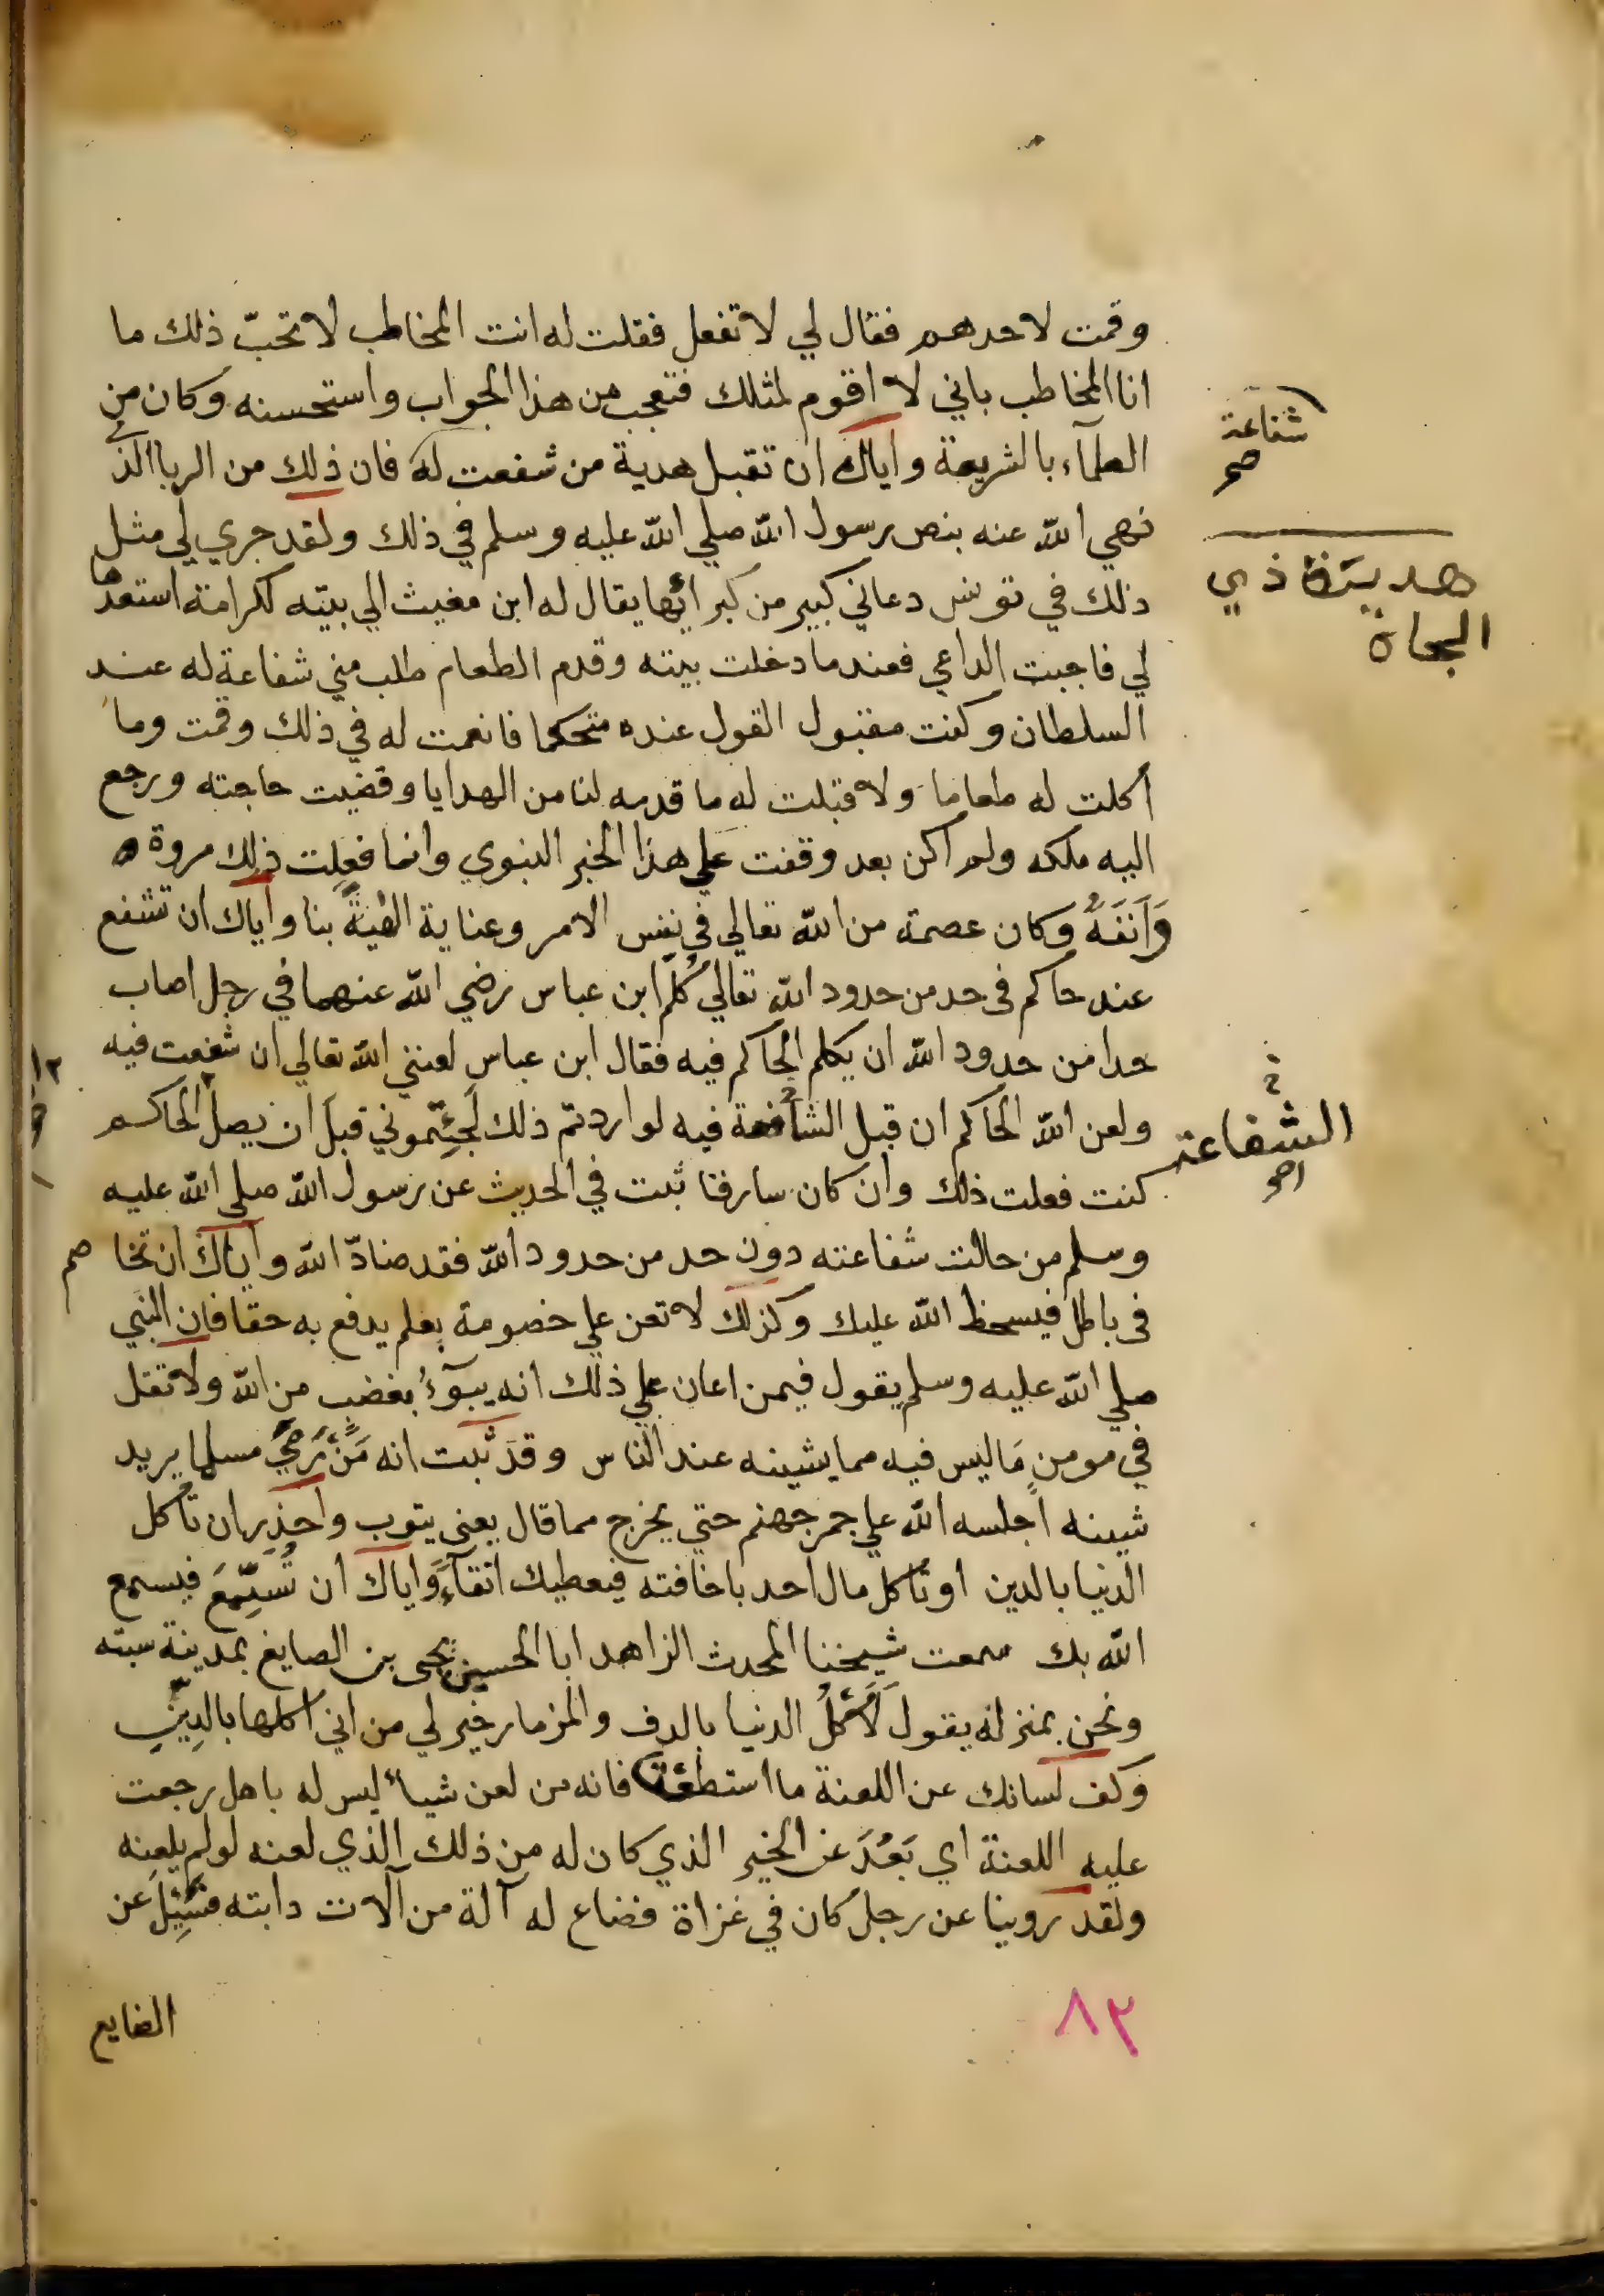 وقمت لاحدهم فقال لي لا تفعل فقلت له انت المخاطب لا تحبّ ذلك ما
انا المخاطب باني لا اقوم لمثلك فتعجب من هذا الجواب واستحسنه وكان من
العلمآء بالشريعة واياك ان تقبل هدية من شفعت له فان ذلك من الربا الذي
نهي الله عنه بنص رسول الله صلي الله عليه وسلم في ذلك ولقد جري لي مثل
ذلك في تونس دعاني كبير من كبرائها يقال له ابن مغيث الي بيته لكرامة استعدها
لي فاجبت الداعي فعندما دخلت بيته وقدم الطعام طلب مني شفاعة له عند
السلطان وكنت مقبول القول عنده متحكما فانعمت له في ذلك وقمت وما
اكلت له طعاما ولا قبلت له ما قدمه لنا من الهدايا وقضيت حاجته ورجع
اليه ملكه ولم اكن بعد وقفت علي هذا الخبر النبوي وانما فعلت ذلك مروة
وَاَنَفَةً وكان عصمة من الله تعالي في نفس الامر وعناية الهيةً بنا واياك ان تشفع
عند حاكم في حد من حدود الله تعالي كُلّم ابن عباس رضي الله عنهما في رجل اصاب
حدا من حدود الله ان يكلم الحاكم فيه فقال ابن عباس لعنني الله تعالي ان شفعت فيه
ولعن الله الحاكم ان قبل الشافعة فيه لو اردتم ذلك لَجِئتموني قبل ان يصل الحاكم
كنت فعلت ذلك وان كان سارقا ثبت في الحديث عن رسول الله صلي الله عليه
وسلم من حالت شفاعته دون حد من حدود الله فقد ضادّ الله واياك ان تخا صم
في باطل فيسخط الله عليك وكذلك لا تعن علي خصومة بعلم يدفع به حقا فان النبي
صلي الله عليه وسلم يقول فيمن اعان علي ذلك انه يبوٓءُ بغضب من الله ولا تقل
في مومنٍ مَا ليس فيه مما يشينه عند الناس وقد ثبت انه مَنْ رَمَيٰ مسلما يريد
شينه اجلسه الله علي جمر جهنم حتي يخرج مما قال يعني يتوب واحذر ان تأكل
الدنيا بالدين او تأكل مال احد باخافته فيعطيك اتقآءً واياك ان تُسَمِّعَ فيسمع
الله بك سمعت شيخنا المحدث الزاهد ابا الحسين يحيى بن الصايغ بمدينة سبته
ونحن بمنزله يقول لَأكلُ الدنيا بالدف والمزمار خير لي من اني اكلها بالدِيْنِ
وكف لسانك عن اللعنة ما استطعت فانه من لعن شيأ ليس له باهل رجعت
عليه اللعنة اي بَعُدَ عن الخير الذي كان له من ذلك الذي لعنه لو لم يلعنه
ولقد روينا عن رجل كان في غزاة فضاع له آلة من آلات دابته فسُئِلَ عن
الضايع
٨٢
شفاعة
صح
هدية ذي
الجاه
الشفاعة